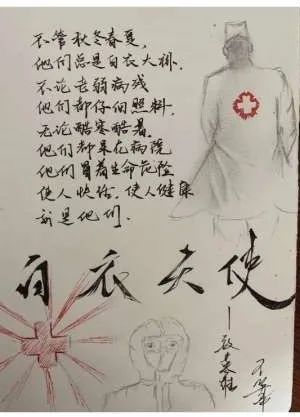 不管秋冬春夏,
他们总是白衣大褂.
不论老弱病残
他们都仔细照料,
无论酷寒酷暑.
他们都来在病院
他们冒着生命危险
使人快活,使人健康
就是他们.
白衣天使